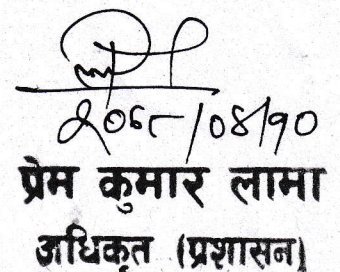 २०६८/०४/१०
प्रेम कुमार लामा
अधिकृत (प्रशासन)